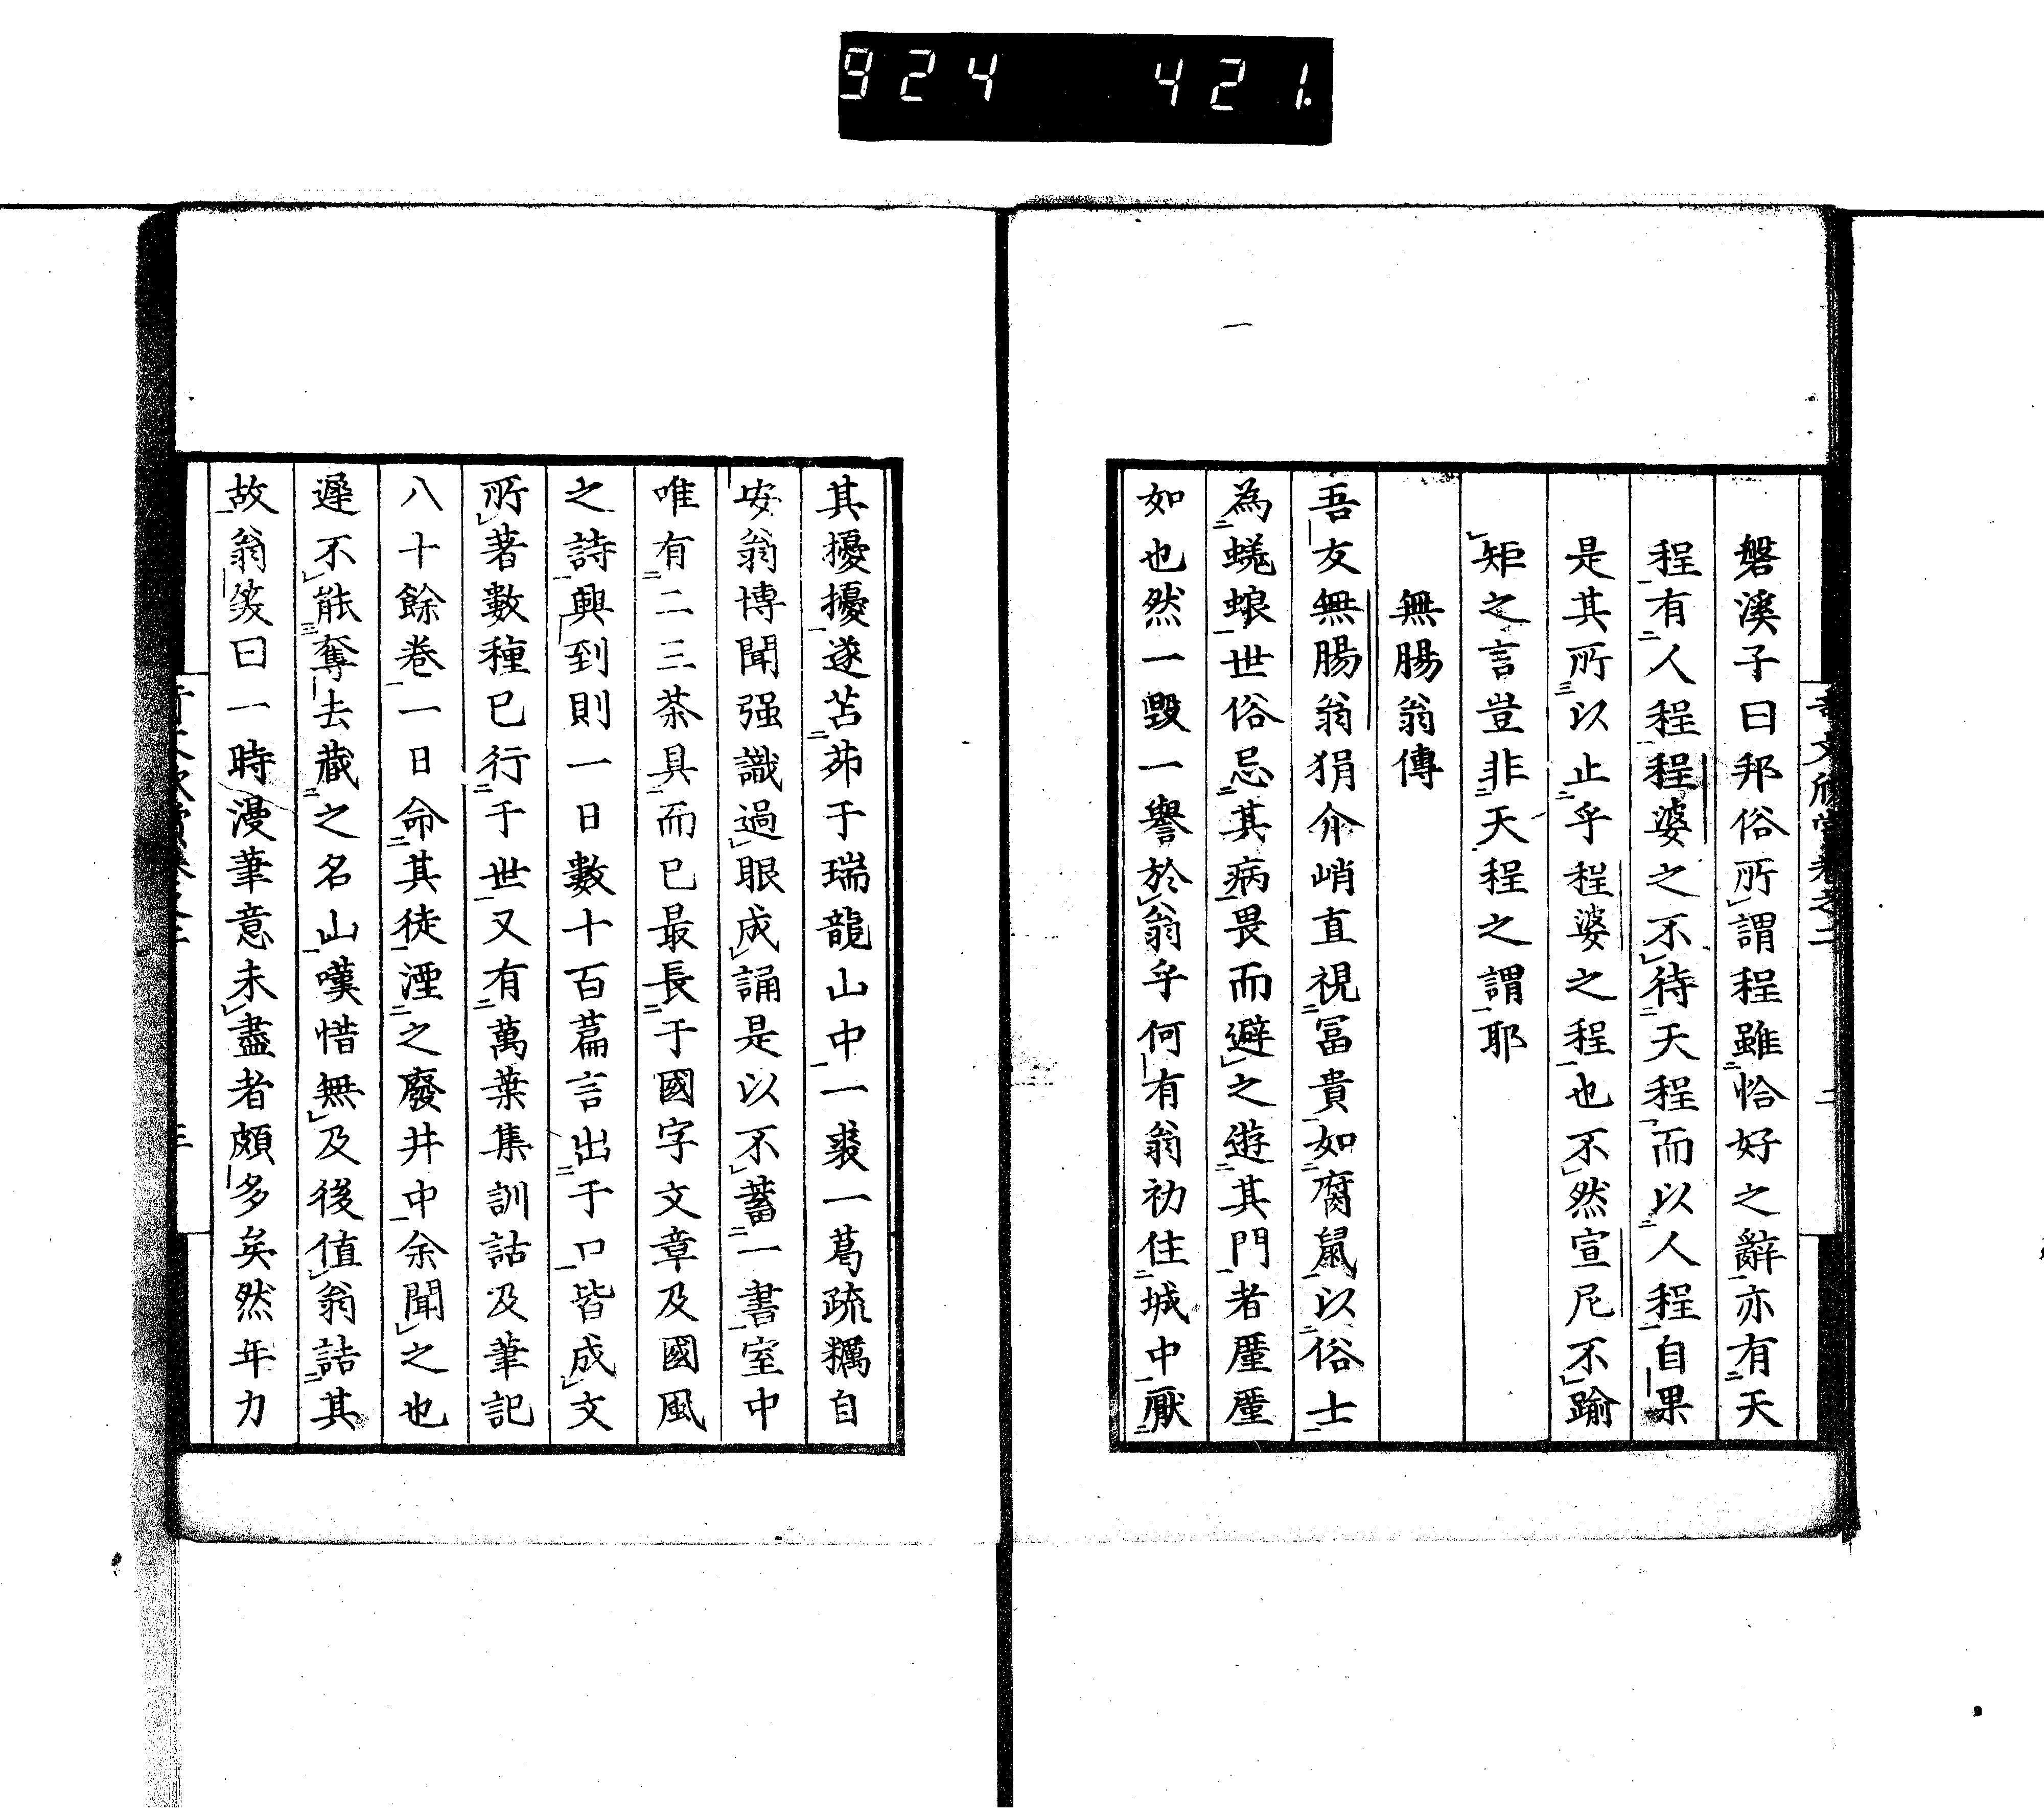 924 421.
磐溪子曰邦俗所謂程雖恰好之辭亦有天
程有人程程婆之不待天程而以人程自果
是其所以止乎程婆之程也不然宣尼不踰
矩之言豈非天程之謂耶
無腸翁傳
吾友無腸翁狷介峭直視冨貴如腐鼠以俗士
為蜣蜋世俗忌其病畏而避之遊其門者厪厪
如也然一毀一譽於翁乎何有翁初住城中厭
其擾擾遂苫茆于瑞龍山中一裘一葛疏糲自
安翁博聞强識過眼成誦是以不蓄一書室中
唯有二三茶具而已最長于國字文章及國風
之詩興到則一日數十百篇言出于口皆成文
所著數種已行于世又有萬葉集訓詁及筆記
八十餘卷一日命其徒湮之廢井中余聞之也
遲不能奪去藏之名山嘆惜無及後值翁詰其
故翁笑曰一時漫筆意未盡者頗多矣然年力